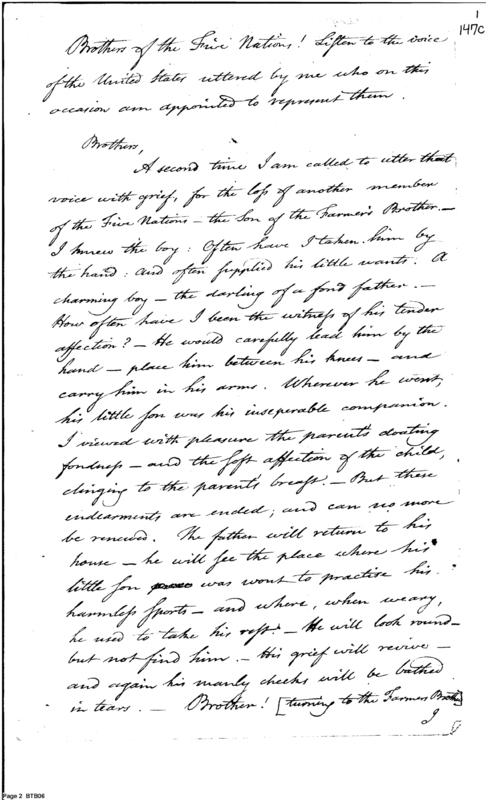 1
147C
Brothers of the Five Nations! Listen to the voice
of the United States uttered by me who on this
occasion am appointed to represent them.
Brothers,
A second time I am called to utter that
voice with grief, for the loss of another member
of the Five Nations – the Son of the Farmer's Brother. –
I knew the boy: Often have I taken him by
the hand: and often supplied his little wants. A
charming boy – the darling of a fond father. –
How often have I been the witness of his tender
affection? – He would carefully lead him by the
hand – place him between his knees – and
carry him in his arms. Wherever he went,
his little son was his inseperable companion.
I viewed with pleasure the parent's doating
fondness – and the soft affection of the child,
clinging to the parent's breast. – But these
endearments are ended; and can no more
be renewed. The father will return to his
house – he will see the place where his
little son was wont to practise his
harmless sports – and where, when weary,
he used to take his rest. – He will look round –
but not find him. – His grief will revive –
and again his manly cheeks will be bathed
in tears. – Brother! [turning to the Farmers Brother]
I
Page 2 BTB06